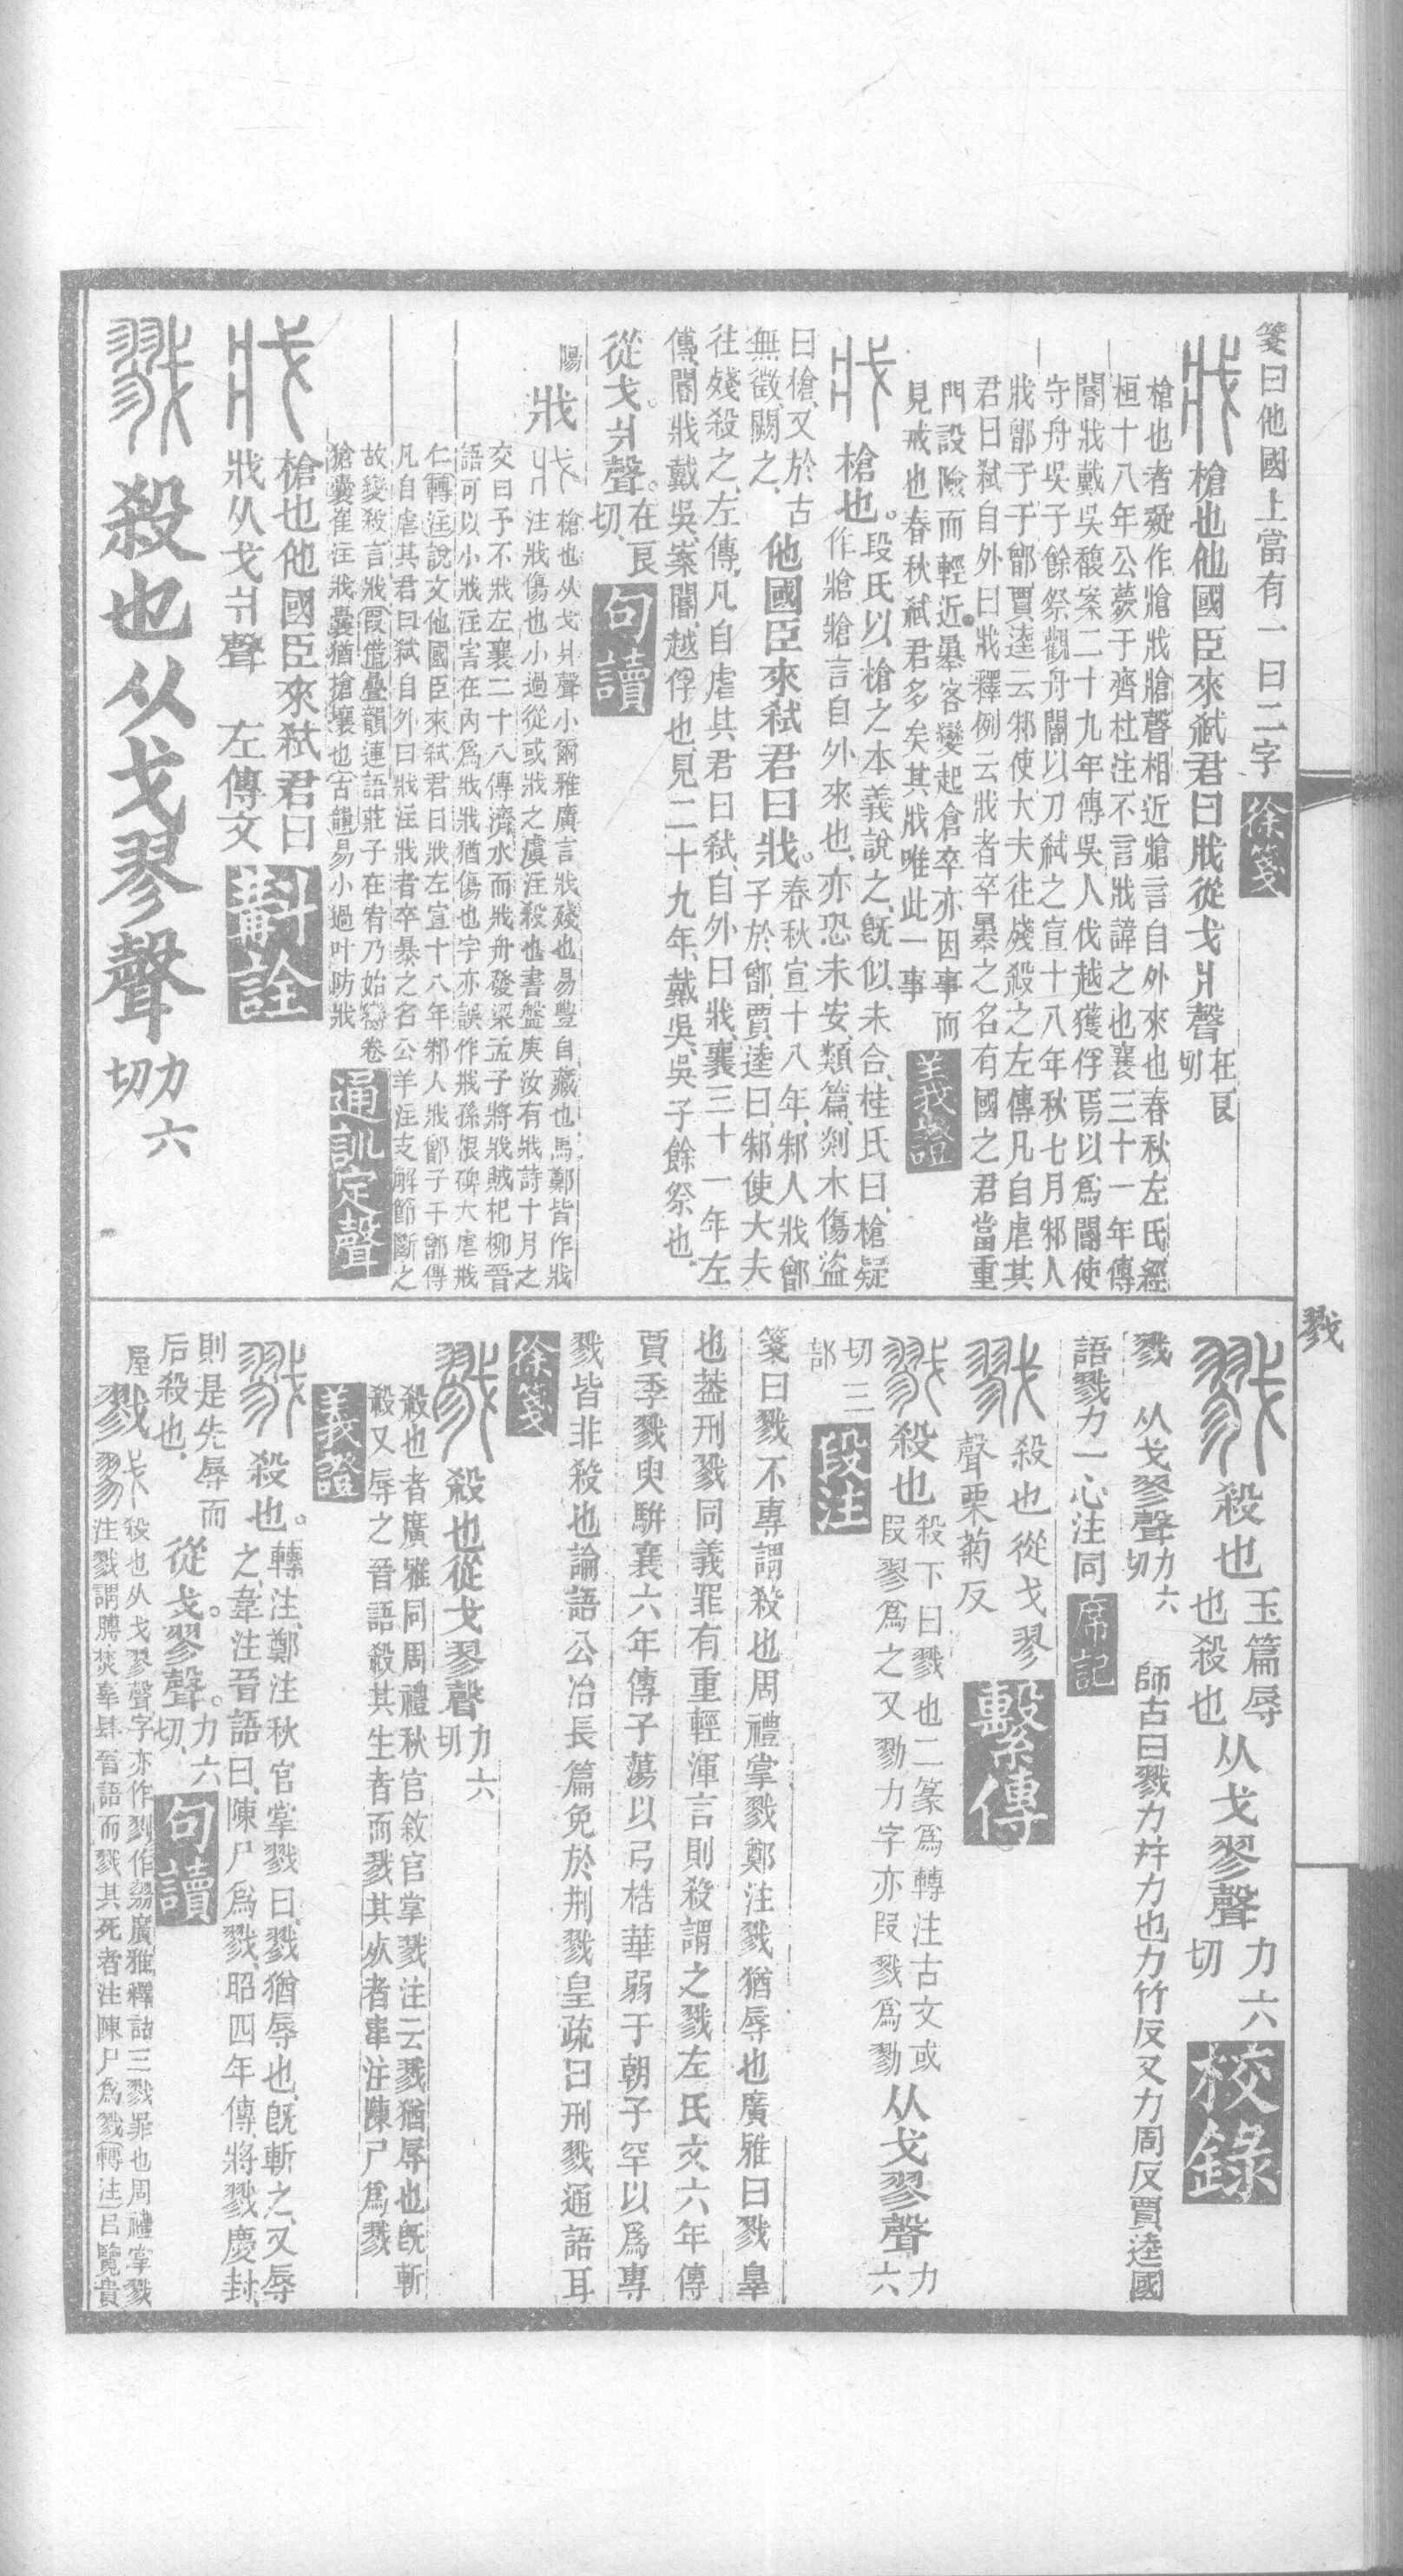 箋曰他國上當有一曰二字 徐箋
戕 槍也他國臣來弒君曰戕從戈爿聲 在良切
槍也者疑作牄戕牄聲相近牄言自外來也春秋左氏經
桓十八年公薨于齊杜注不言戕諱之也襄三十一年傳
閽戕戴吳馥案二十九年傳吳人伐越獲俘焉以爲閽使
守舟吳子餘祭觀舟閽以刀弒之宣十八年秋七月邾人
戕鄫子于鄫賈逵云邾使大夫往殘殺之左傳凡自虐其
君曰弒自外曰戕釋例云戕者卒暴之名有國之君當重
門設險而輕近暴客變起倉卒亦因事而
見戒也春秋弒君多矣其戕唯此一事 義證
戕 槍也。段氏以槍之本義說之、既似、未合、桂氏曰、槍疑
作牄牄言自外來也、亦恐未安、類篇、剡木傷盜
曰槍、又於古
無徵、闕之、他國臣來弒君曰戕。春秋宣十八年、邾人戕鄫
子於鄫、賈逵曰、邾使大夫
往殘殺之、左傳、凡自虐其君曰弒、自外曰戕、襄三十一年左
傳、閽戕戴吳、案閽、越俘也、見二十九年、戴吳、吳子餘祭也、
從戈。爿聲。在良切、 句讀
陽
戕 槍也从戈爿聲小爾雅廣言戕殘也易豐自藏也馬鄭皆作戕
注戕傷也小過從或戕之虞注殺也書盤庚汝有戕詩十月之
交曰予不戕左襄二十八傳濟水而戕舟發梁孟子將戕賊杞柳晉
語可以小戕注害在內爲戕戕猶傷也字亦誤作戕孫根碑大虐戕
仁轉注說文他國臣來弒君曰戕左宣十八年邾人戕鄫子于鄫傳
凡自虐其君曰弒自外曰戕注戕者卒暴之名公羊注支解節斷之
故變殺言戕假借疊韻連語莊子在宥乃始臠卷
獊囊崔注戕囊猶搶攘也古韻易小過叶防戕 通訓定聲
戕 槍也他國臣來弒君曰
戕从戈爿聲 左傳文 斠詮
戮 殺也从戈翏聲 力六切
戮
戮 殺也 玉篇辱也殺也 从戈翏聲 力六切 校錄
戮 从戈翏聲力六切 師古曰戮力并力也力竹反又力周反賈逵國
語戮力一心注同 席記
戮 殺也從戈翏
聲栗菊反 繫傳
戮 殺也 殺下曰戮也二篆爲轉注古文或
叚翏爲之又勠力字亦叚戮爲勠 从戈翏聲 力六
切三部 段注
箋曰戮不專謂殺也周禮掌戮鄭注戮猶辱也廣雅曰戮辠
也蓋刑戮同義罪有重輕渾言則殺謂之戮左氏文六年傳
賈季戮臾駢襄六年傳子蕩以弓梏華弱于朝子罕以爲專
戮皆非殺也論語公冶長篇免於刑戮皇疏曰刑戮通語耳
徐箋
戮 殺也從戈翏聲 力六切
殺也者廣雅同周禮秋官敘官掌戮注云戮猶辱也既斬
殺又辱之晉語殺其生者而戮其死者韋注陳尸爲戮
義證
戮 殺也。轉注、鄭注秋官掌戮曰、戮猶辱也、既斬之、又辱
之、韋注晉語曰、陳尸爲戮、昭四年傳、將戮慶封、
則是先辱而
后殺也、從戈。翏聲。力六切、 句讀
屋
戮 殺也从戈翏聲字亦作剹作勠廣雅釋詁三戮罪也周禮掌戮
注戮謂膊焚辜肆晉語而戮其死者注陳尸爲戮轉注呂覽貴